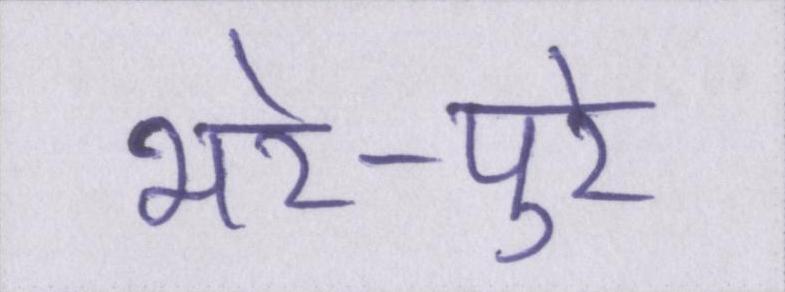 भरे-पुरे